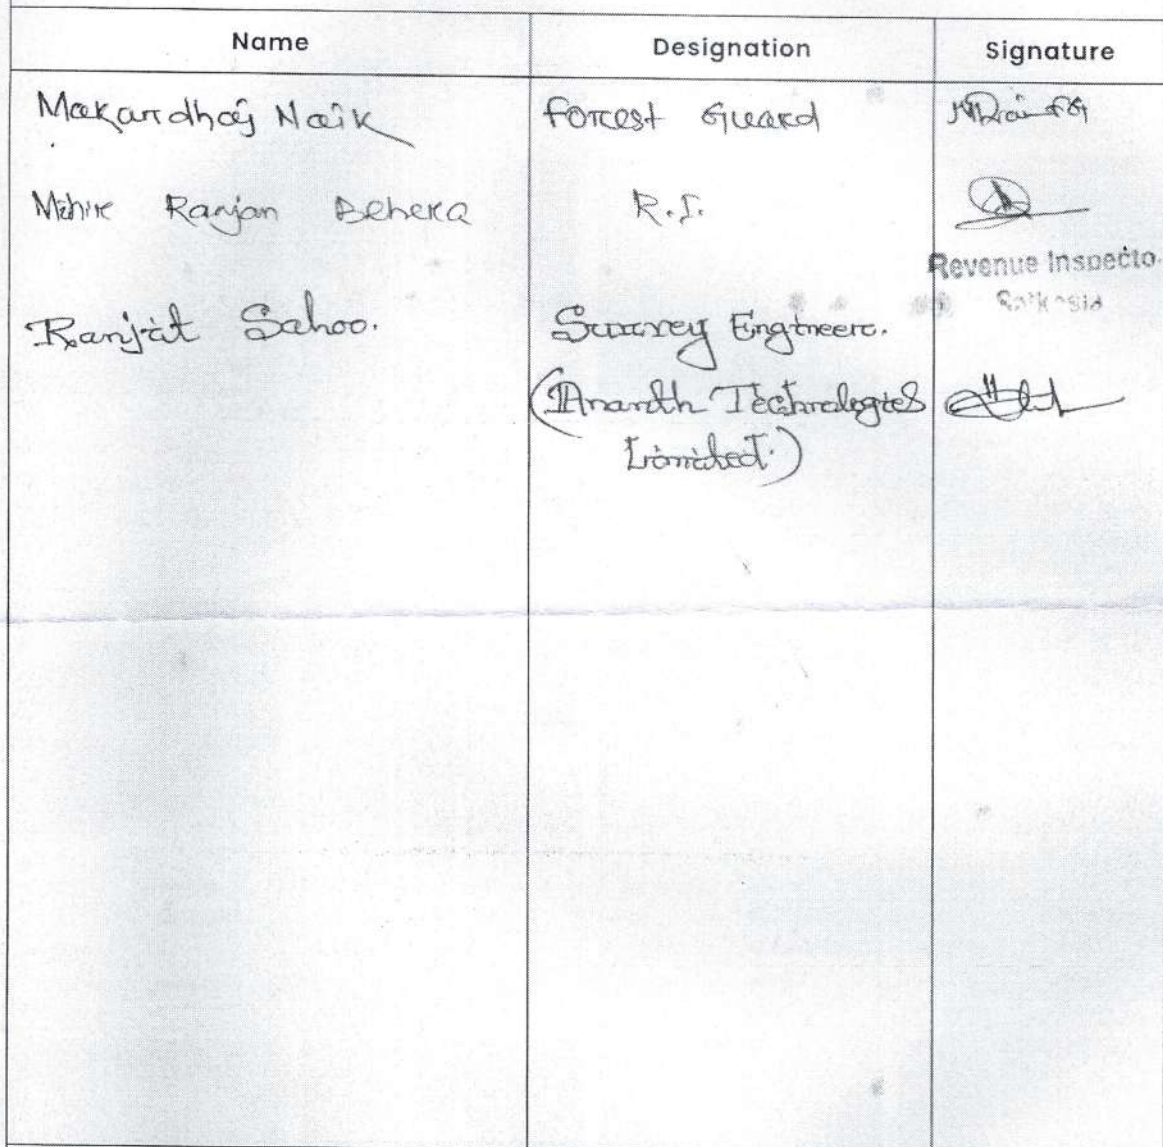 Name Designation Signature
Makardhaj Naik Forest Guard
Mihir Ranjan Behera R.I.
Revenue Inspecto
Ranjit Sahoo. Survey Engineer.
(Ananth Technologies
Limited.)